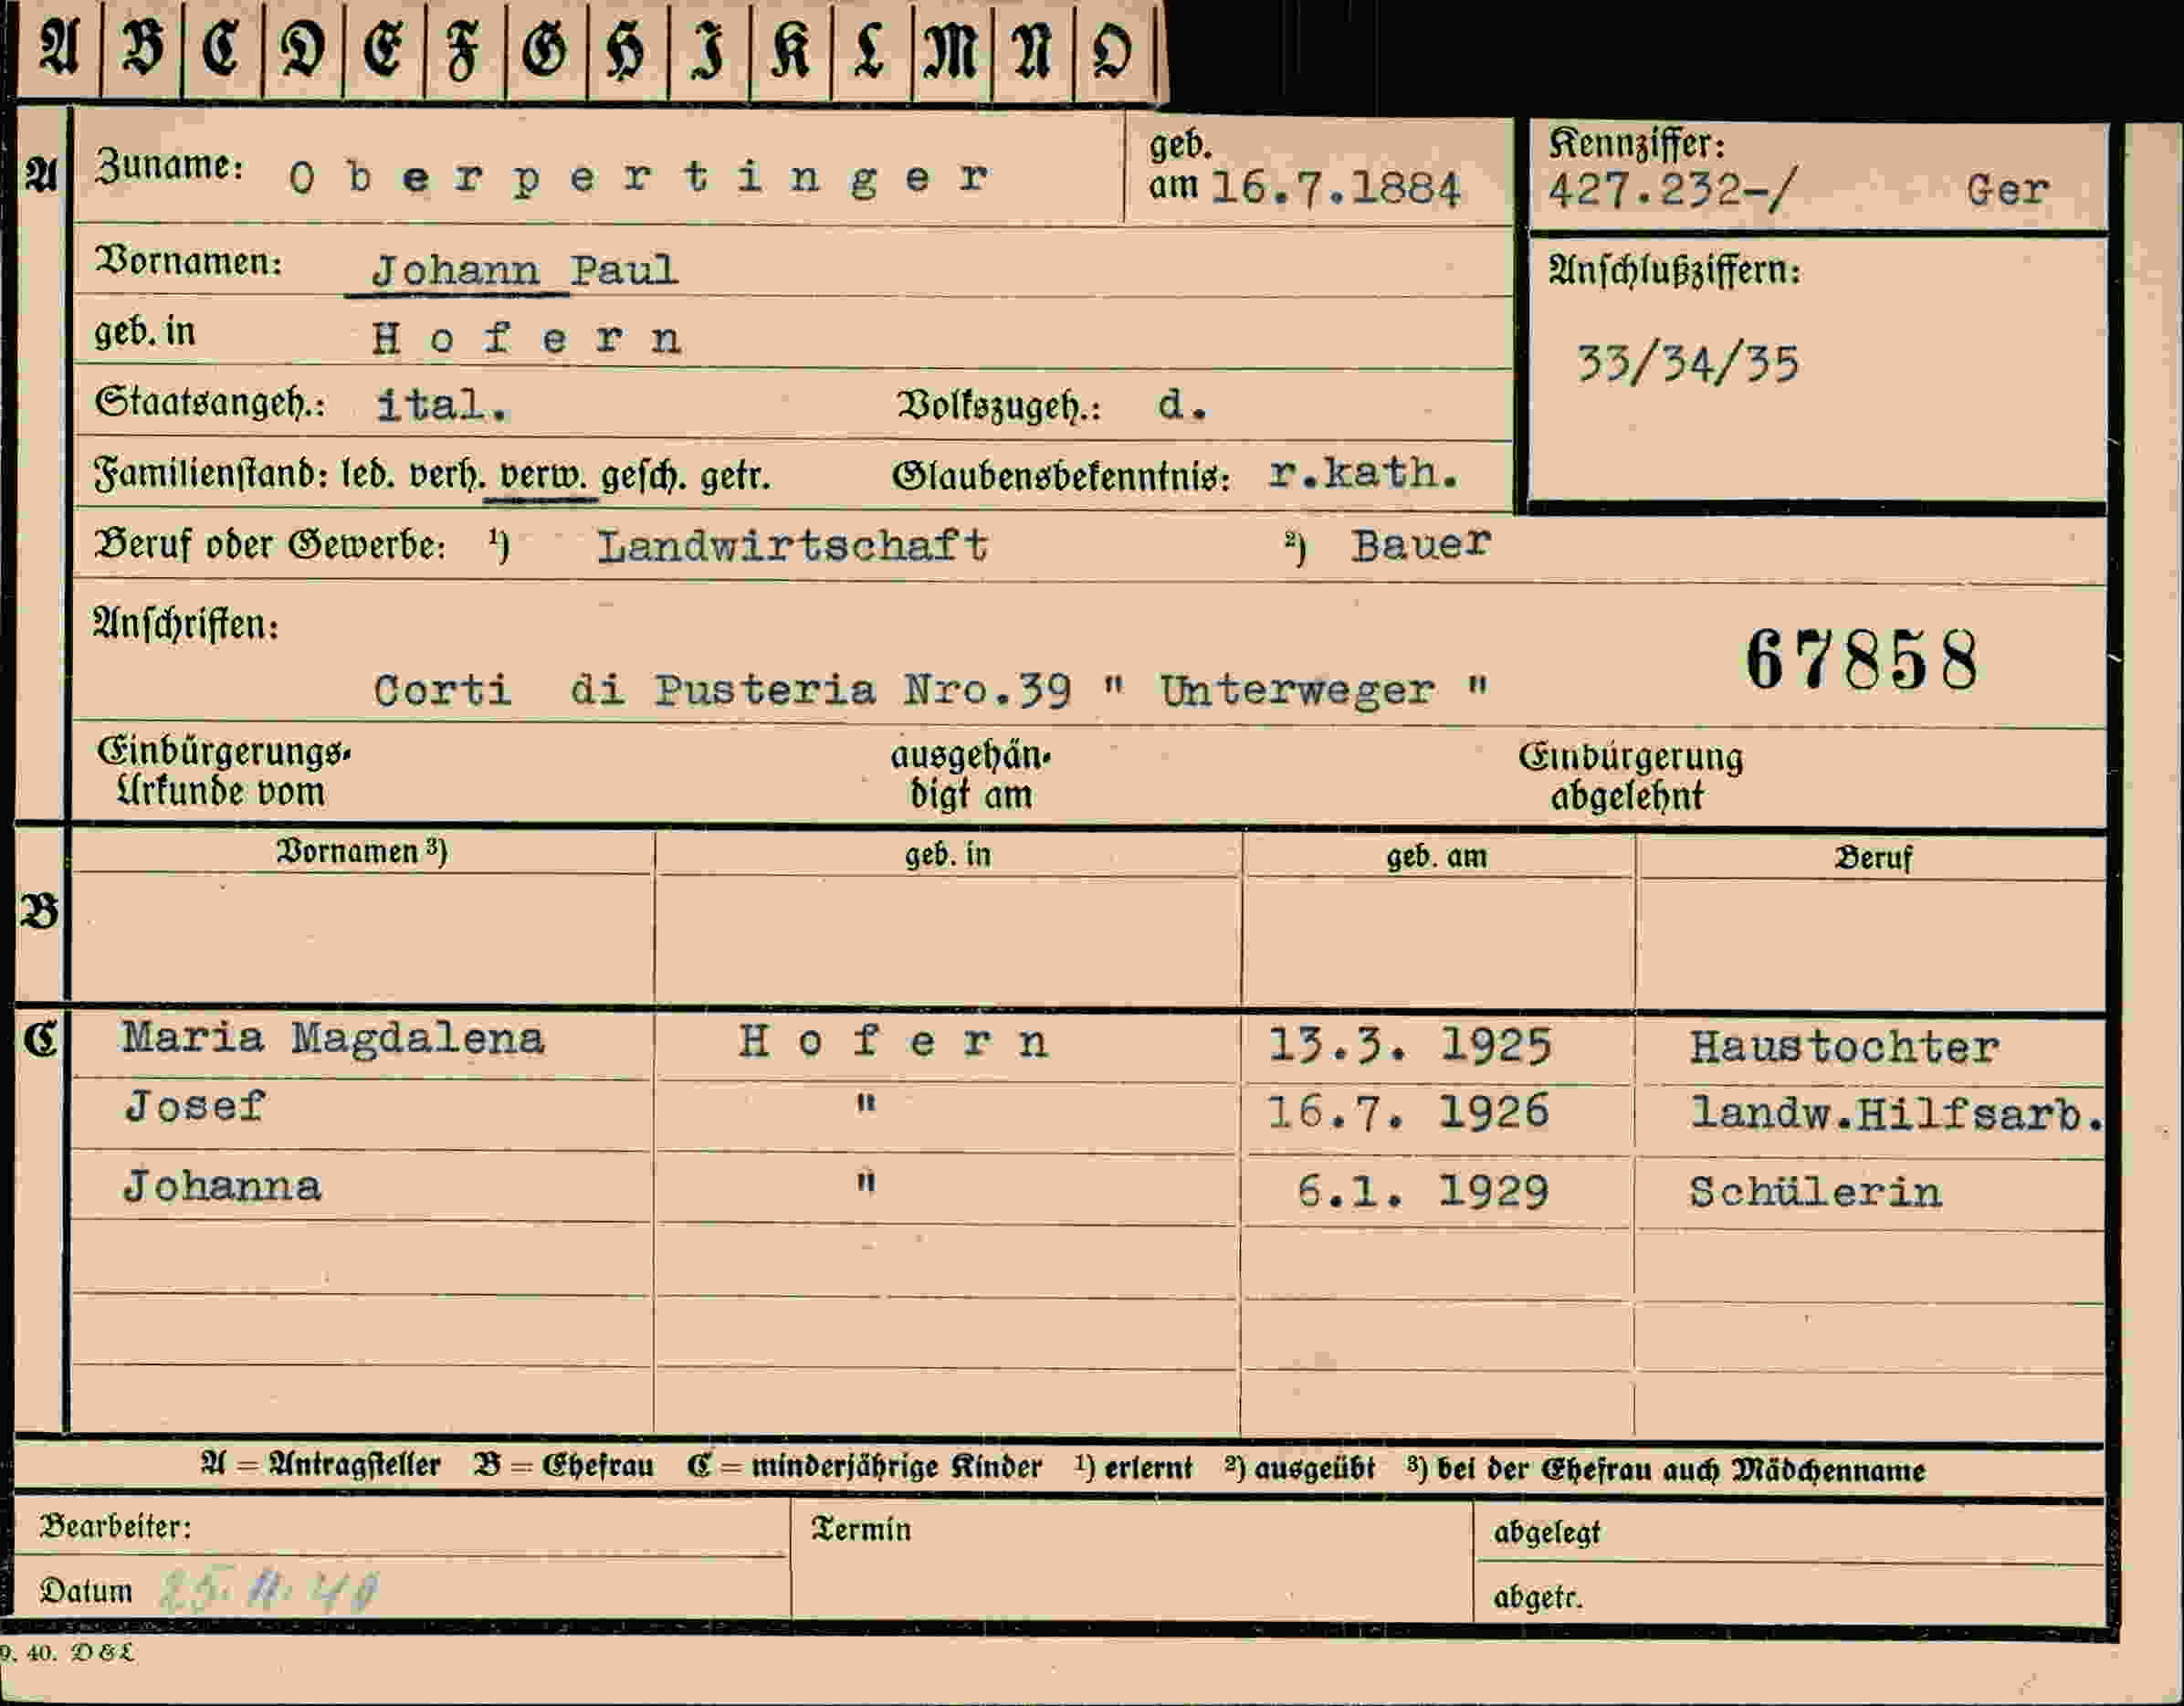 A B C D E F G H I K L M N O
A Zuname: Oberpertinger geb. am 16.7.1884
Kennziffer:
427.232-/ Ger
Vornamen: Johann Paul
Anschlußziffern:
33/34/35
geb. in Hofern
Staatsangeh.: ital. Volkszugeh.: d.
Familienstand: led. verh. verw. gesch. getr. Glaubensbekenntnis: r.kath.
Beruf oder Gewerbe: ¹) Landwirtschaft ²) Bauer
Anschriften:
67858
Corti di Pusteria Nro.39 " Unterweger "
Einbürgerungs-Urkunde vom ausgehän-digt am Einbürgerung abgelehnt
B Vornamen ³) geb. in geb. am Beruf
C Maria Magdalena Hofern 13.3. 1925 Haustochter
Josef " 16.7. 1926 landw.Hilfsarb.
Johanna " 6.1. 1929 Schülerin
A = Antragsteller B = Ehefrau C = minderjährige Kinder ¹) erlernt ²) ausgeübt ³) bei der Ehefrau auch Mädchenname
Bearbeiter: Termin abgelegt
Datum 25. 11. 40 abgetr.
9. 40. D & L